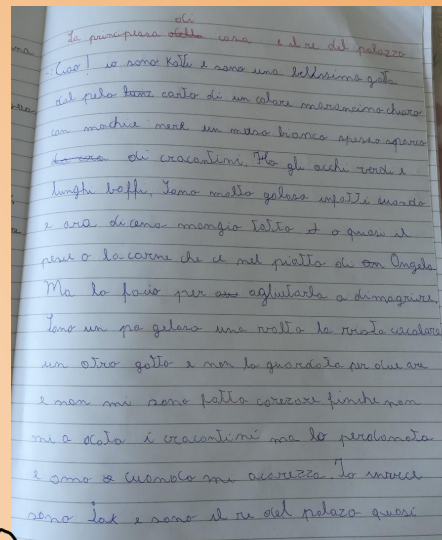 La principessa di casa e il re del palazzo
Ciao! io sono Katti e sono una bellissima gatta
dal pelo corto di un colore marroncino chiaro
con macchie nere un muso bianco spesso sporco
di cracantini. Ho gli occhi verdi e
lunghi baffi. Sono molto golosa infatti quando
e ora di cena mangio tutto o quasi il
pesce o la carne che ce nel piatto di Angela
Ma lo facio per agliutarla a dimagrire.
Sono un po gelosa una volta la vista cacolare
un otro gatto e non lo guardata per due ore
e non mi sono fatta carezare finche non
mi a data i cracantini ma lo perdonata
e amo cuando mi acarezza. Io invece
sono Jak e sono il re del palazo quasi